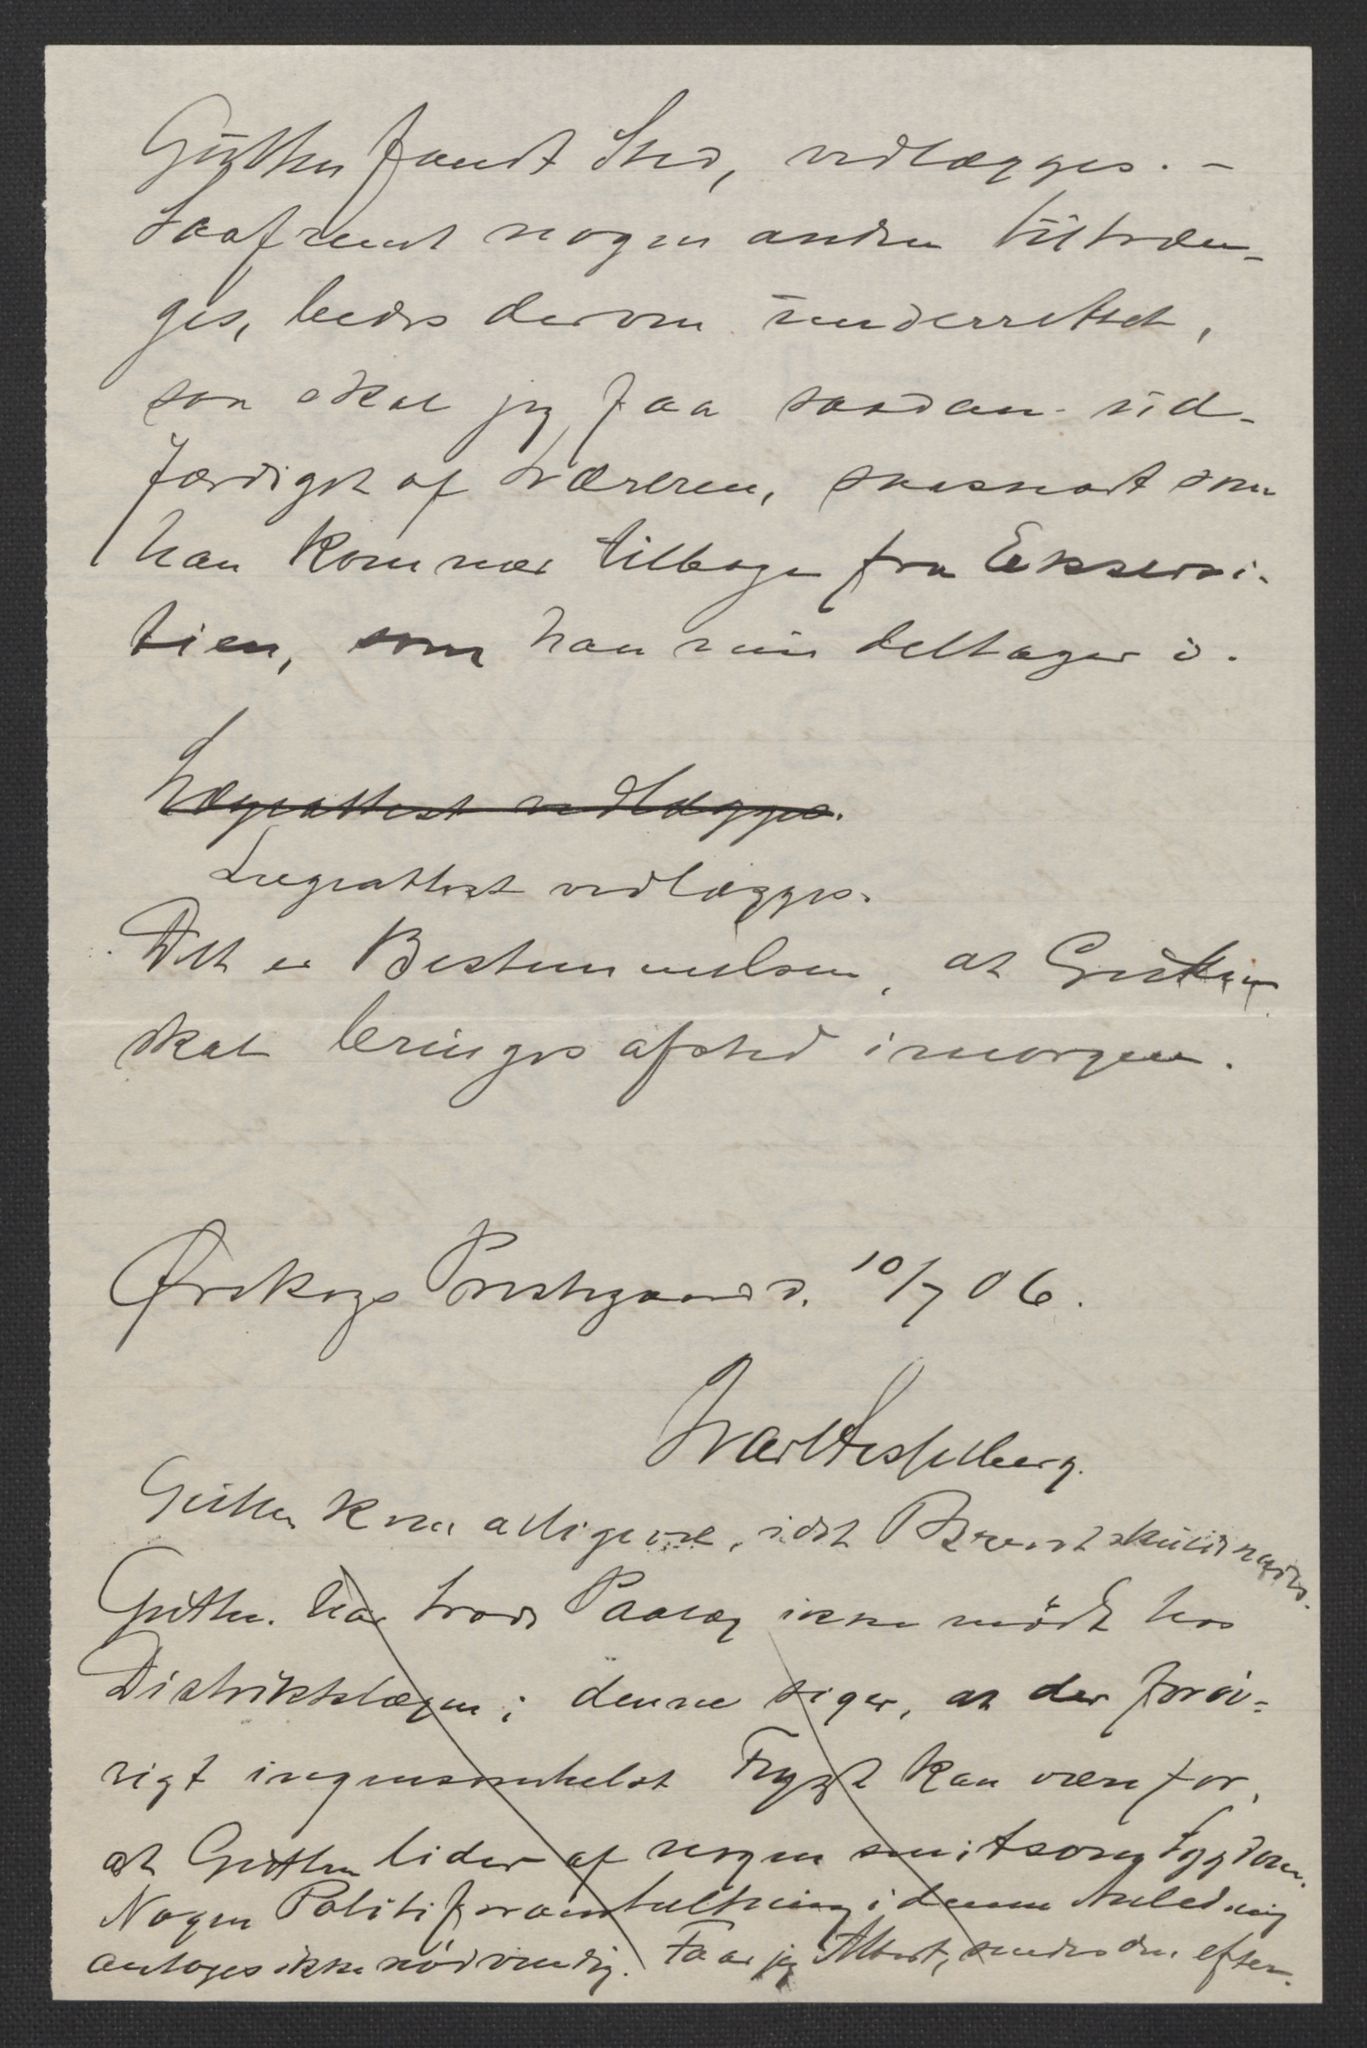 Gutten fandt Sted, vedlægges. –
Saafremt nogen anden tiltræn-
ges, bedes derom underrettet,
saa skal jeg faa saadan ud-
færdiget af Læreren, saasnart som
han kommer tilbage fra Ekserci-
tien, som han nu deltager i.
Lægeattest vedlægges.
Lægeattest vedlægges.
Det er Bestemmelsen, at Gutten
skal bringes afsted imorgen.
Ørskogs Prestegaard d. 10/7 06.
Ivar Hesselberg.
Gutten kom alligevel, idet
Gutten har trods Paalæg ikke mødt hos
Distriktslægen; denne siger, at der forøv-
rigt ingensomhelst Frygt kan være for,
at Gutten lider af nogen smitsom Sygdom.
Nogen Politiforanstaltning i denne Anledning
antages ikke nødvendig. Faar jeg Attest, sendes den efter.